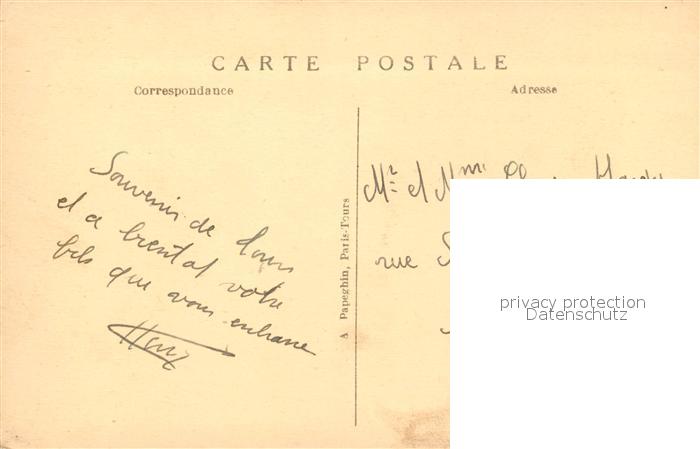 CARTE POSTALE
Correspondance
Adresse
Souvenir de Tours
et a bientot votre
fils que vous embrasse
Mr et Mme
rue
A Papeghin, Paris-Tours
privacy protection
Datenschutz